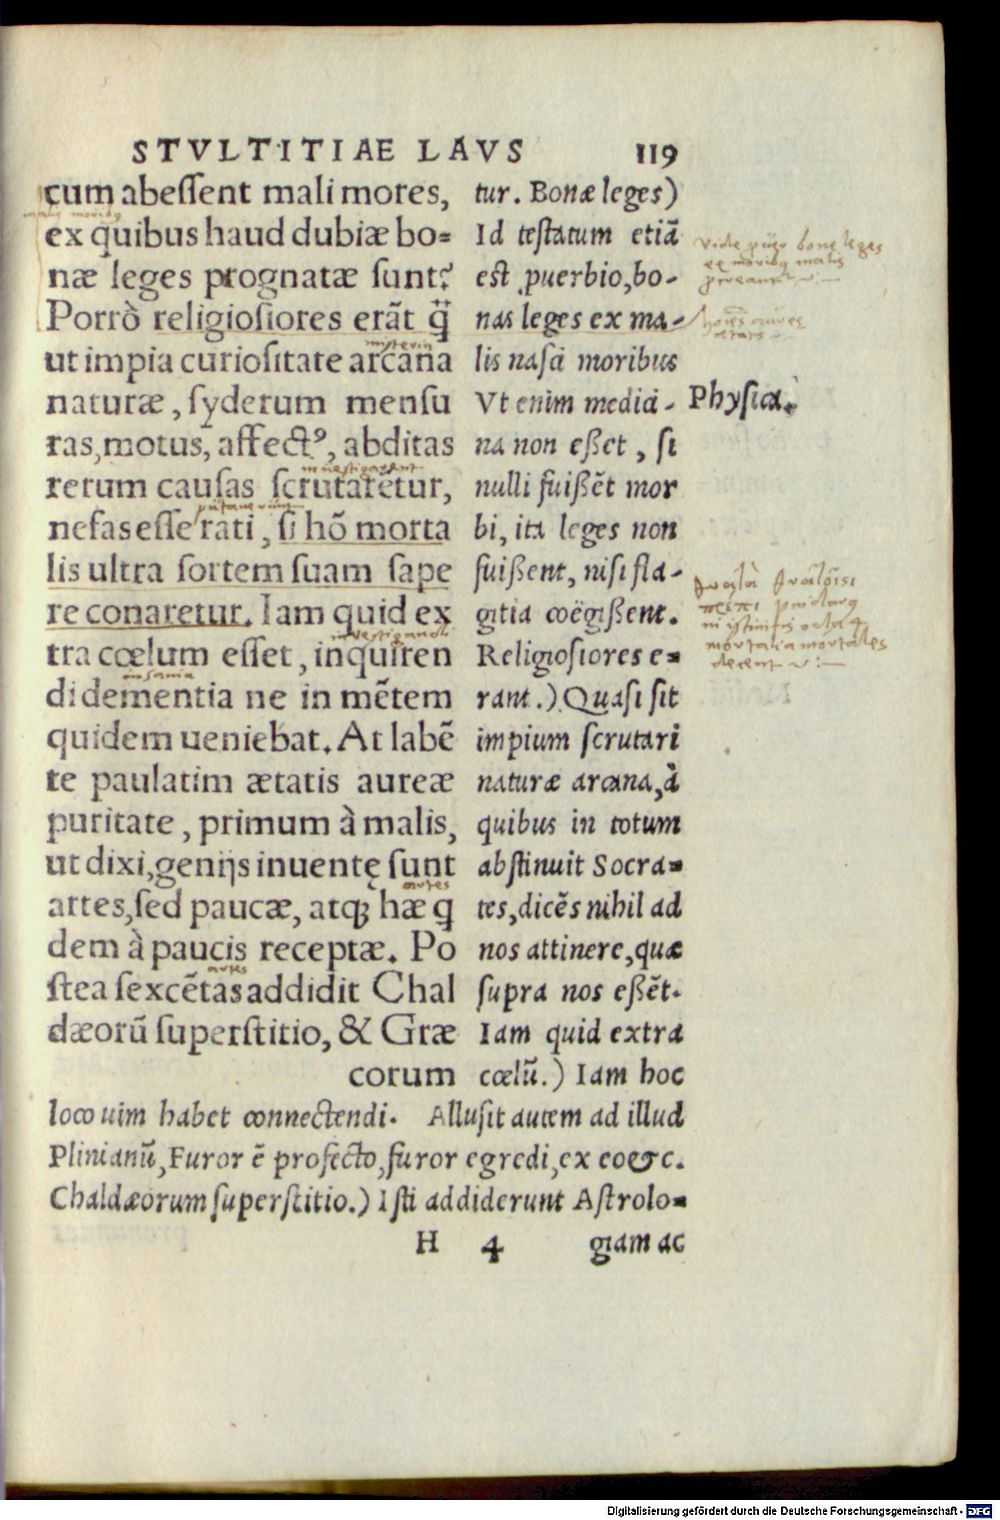 STVLTITIAE LAVS 119
cum abeſſent mali mores,
ex quibus haud dubiæ bo=
næ leges prognatæ sunt?
Porrò religioſiores erãt q̃
ut impia curioſitate arcana
naturæ, ſyderum menſu
ras, motus, affectꝰ, abditas
rerum cauſas ſcrutarẽtur,
nefas eſſe rati, ſi hõ morta
lis ultra ſortem ſuam ſape
re conaretur. Iam quid ex
tra cœlum eſſet, inquiren
di dementia ne in mẽtem
quidem ueniebat. At labẽ
te paulatim ætatis aureæ
puritate, primum à malis,
ut dixi, genijs inuentę ſunt
artes, ſed paucæ, atqꝫ hæ q
dem à paucis receptæ. Po
ſtea ſexcẽtas addidit Chal
dæorũ ſuperſtitio, & Græ
corum
tur. Bonæ leges)
Id teſtatum etiã
est ꝓuerbio, bo-
nas leges ex ma-
lis naſci moribus
Vt enim medici-
na non eßet, ſi
nulli fuißẽt mor
bi, ita leges non
fuißent, niſi fla-
gitia coëgißent.
Religioſiores e=
rant.) Quaſi ſit
impium ſcrutari
naturæ arcana, à
quibus in totum
abſtinuit Socra=
tes, dicẽs nihil ad
nos attinere, quæ
ſupra nos eßẽt.
Iam quid extra
cœlũ.) Iam hoc
loco uim habet connectendi. Alluſit autem ad illud
Plinianũ, Furor ẽ profecto, furor egredi, ex eo &c.
Chaldæorum ſuperſtitio.) Iſti addiderunt Aſtrolo=
H 4 giam ac
Phyſica.
malis moribus
mysteria
inuestigarent
inuestigandi
insania
artes
artes
mortalia mortales
decent
Digitalisierung gefördert durch die Deutsche Forschungsgemeinschaft - DFG